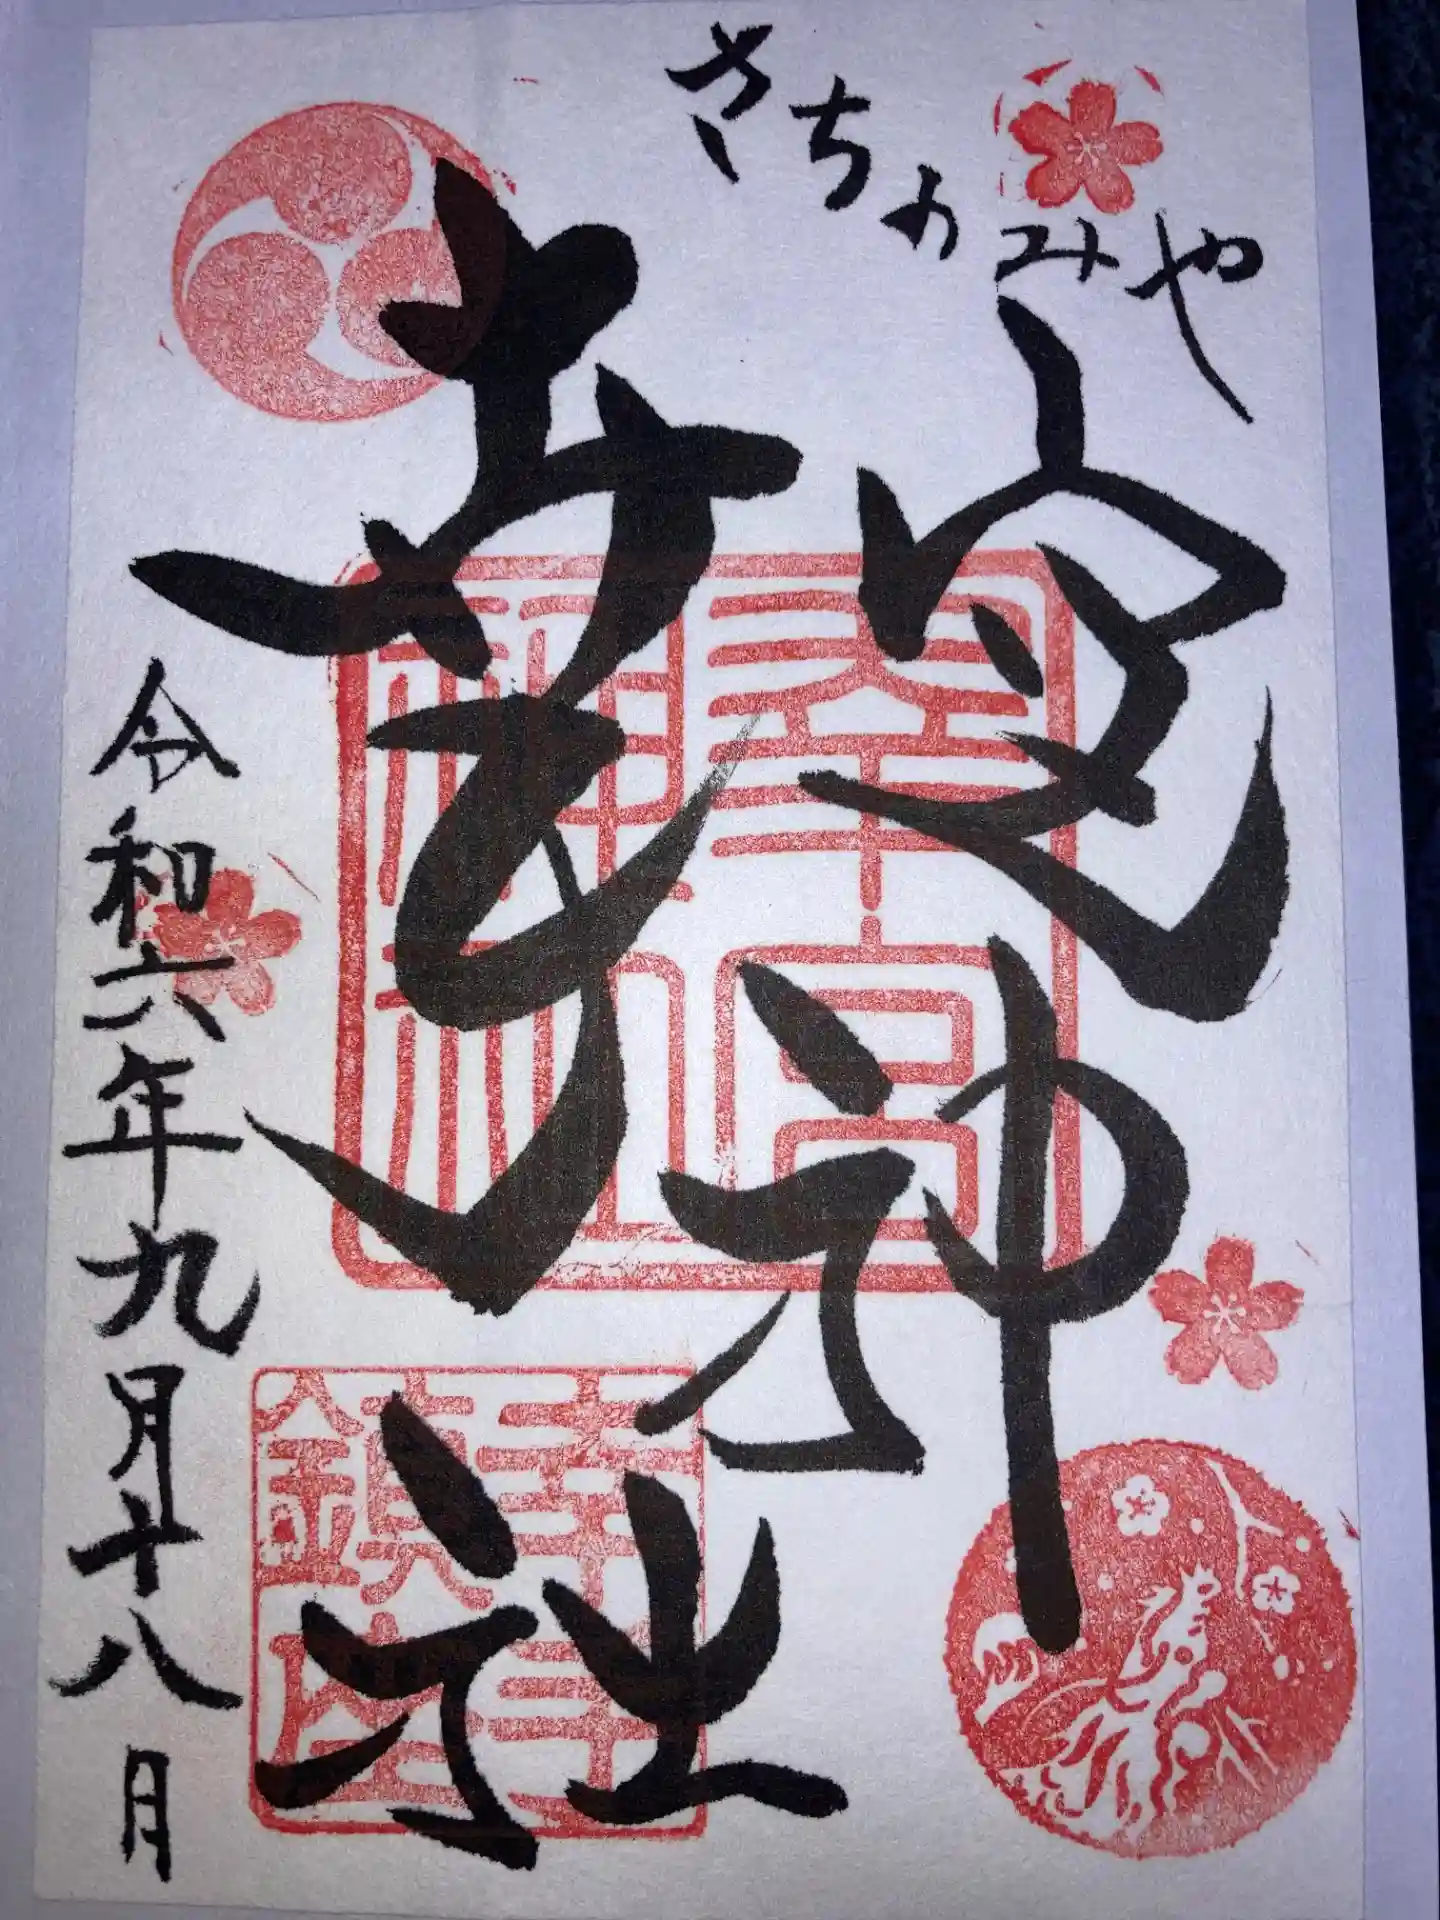 さちのみや
幸宮神社
幸宮神社
幸手鎮座
令和六年九月十八日